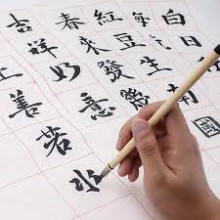 白日
紅豆生南國
春來發幾
吉祥如意
上善若水